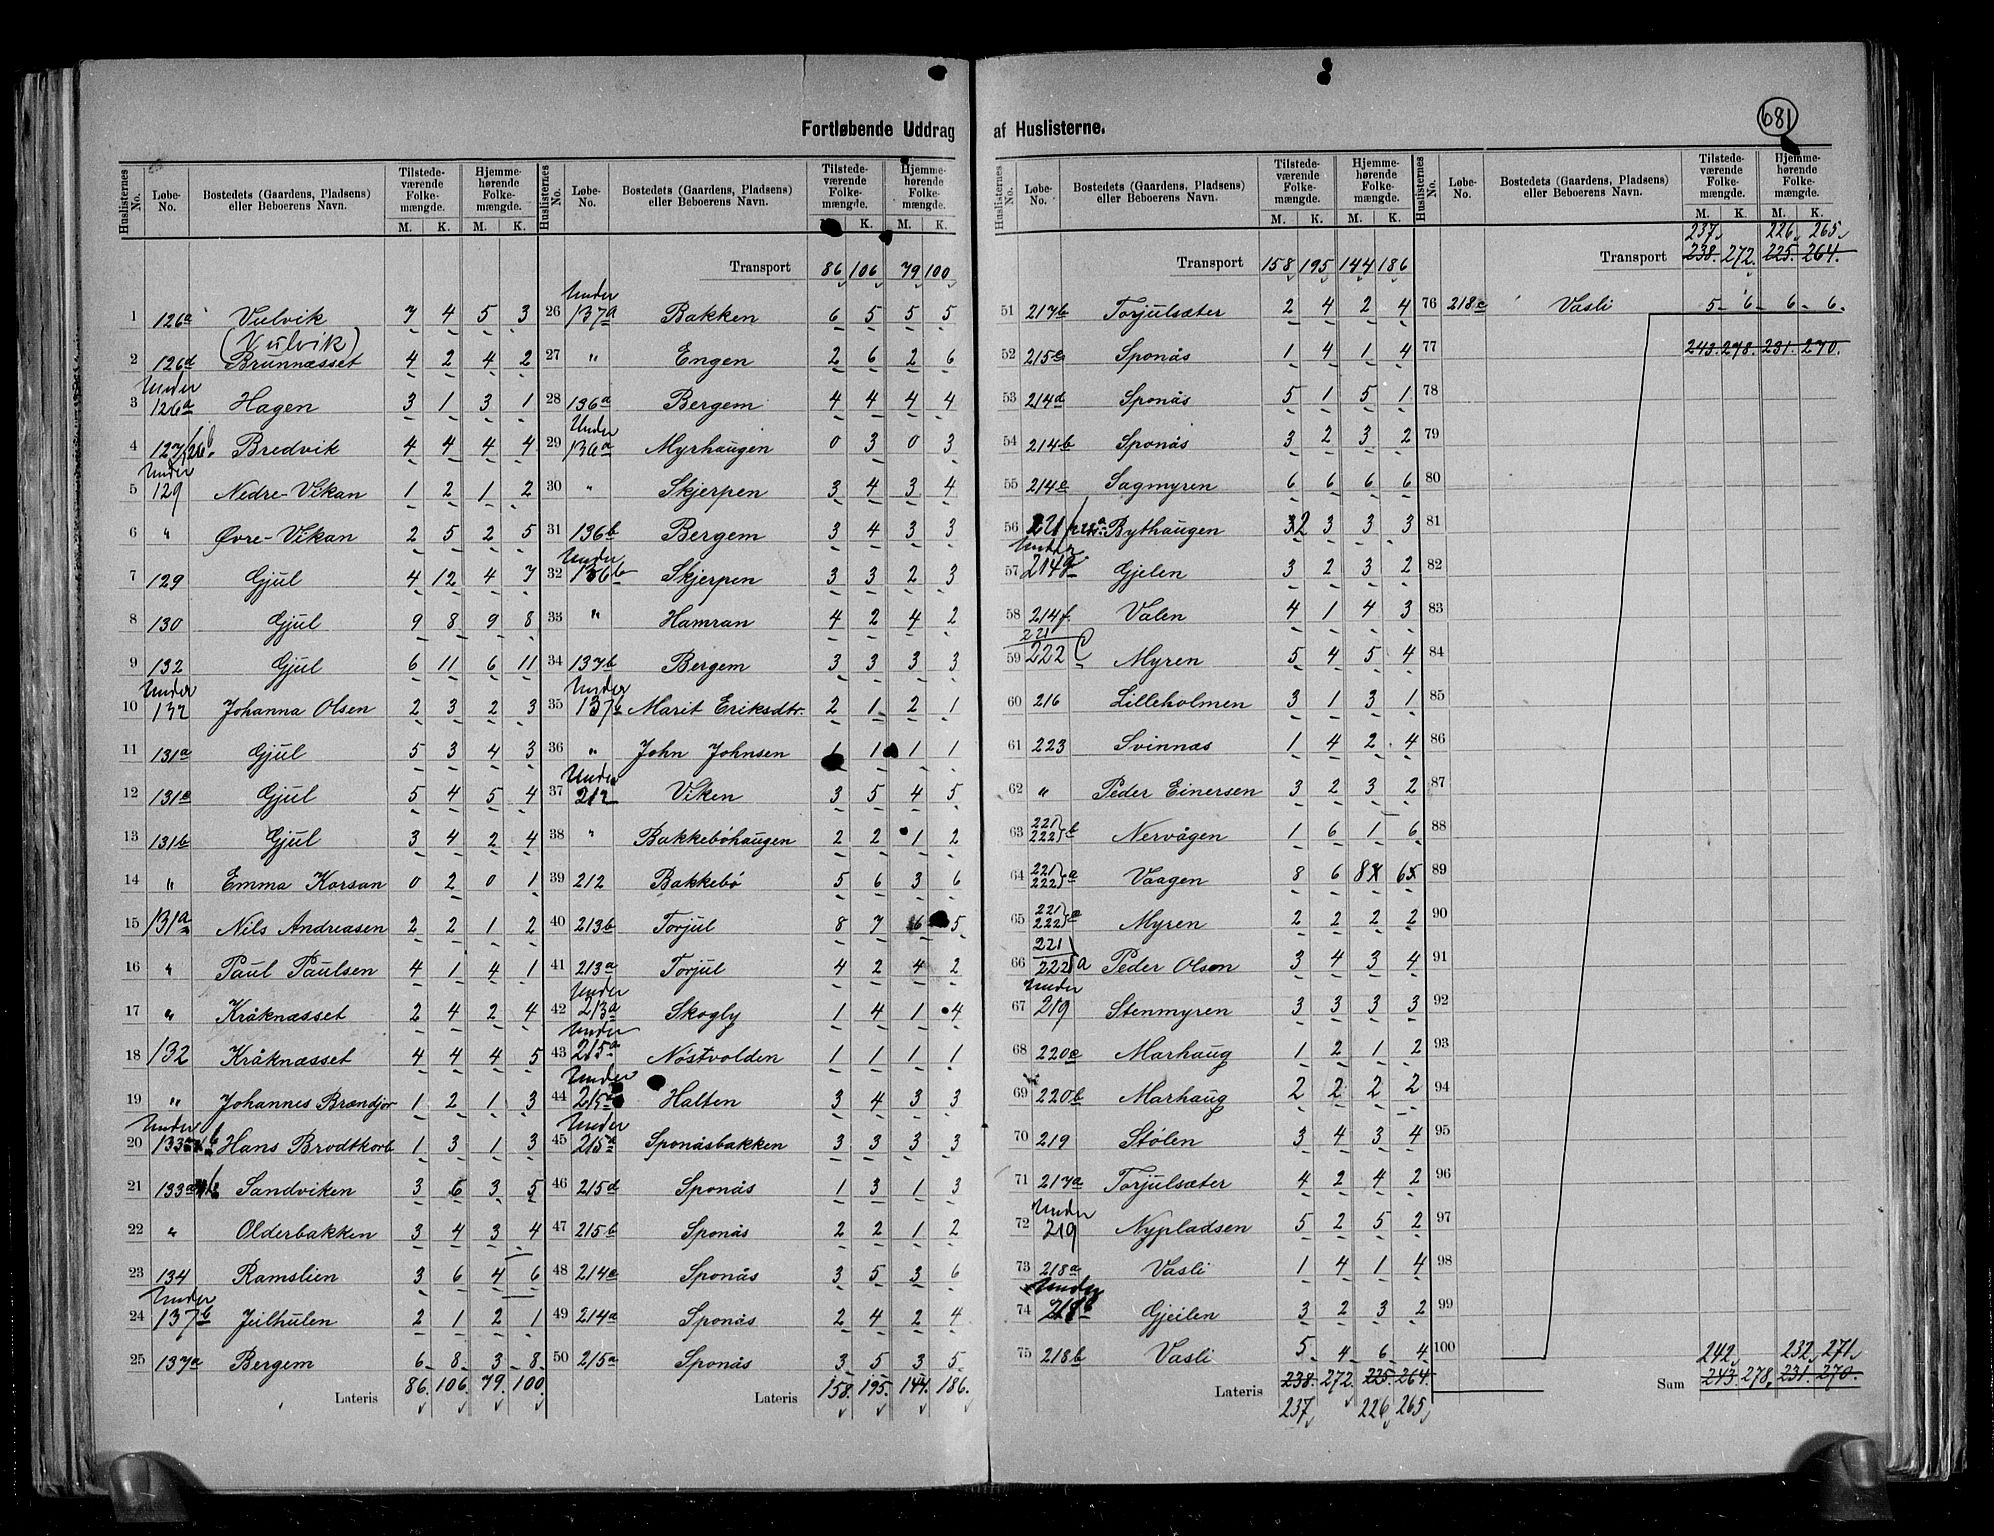 681
Fortløbende Uddrag af Huslisterne.
Huslisternes No. Løbe-No. Bostedets (Gaardens, Pladsens) eller Beboerens Navn. Tilstedeværende Folkemængde. M. K. Hjemmehørende Folkemængde. M. K.
1 126a Vulvik 7 4 5 3
(Vulvik)
2 126d Brunnæsset 4 2 4 2
3 Under 126a Hagen 3 1 3 1
4 127 Bredvik 4 4 4 4
5 Under 129 Nedre-Vikan 1 2 1 2
6 " Øvre-Vikan 2 5 2 5
7 129 Gjul 4 12 4 7
8 130 Gjul 9 8 9 8
9 132 Gjul 6 11 6 11
10 Under 132 Johanna Olsen 2 3 2 3
11 131a Gjul 5 3 4 3
12 131c Gjul 5 4 5 4
13 131b Gjul 3 4 2 4
14 " Emma Korsan 0 2 0 1
15 131a Nils Andreasen 2 2 1 2
16 " Paul Paulsen 4 1 4 1
17 " Kråknæsset 2 4 2 4
18 132 Kråknæsset 4 4 4 5
19 " Johannes Brandjor 1 2 1 3
20 Under 133a Hans Brodtkorb 1 3 1 3
21 133a Sandviken 3 6 3 5
22 " Olderbakken 3 4 3 4
23 134 Ramslien 3 6 4 6
24 Under 137b Julhulen 2 1 2 1
25 137a Bergem 6 8 3 8
Lateris 86. 106. 79. 100.
Huslisternes No. Løbe-No. Bostedets (Gaardens, Pladsens) eller Beboerens Navn. Tilstedeværende Folkemængde. M. K. Hjemmehørende Folkemængde. M. K.
Transport 86 106 79 100
26 Under 137a Bakken 6 5 5 5
27 " Engen 2 6 2 6
28 136a Bergem 4 4 4 4
29 Under 136a Myrhaugen 0 3 0 3
30 " Skjerpen 3 4 3 4
31 136b Bergem 3 4 3 3
32 Under 136b Skjerpen 3 3 2 3
33 " Hamran 4 2 4 2
34 137b Bergem 3 3 3 3
35 Under 137b Marit Eriksdtr. 2 1 2 1
36 " John Johnsen 1 1 1 1
37 Under 212 Viken 3 5 4 5
38 " Bakkebøhaugen 2 2 1 2
39 212 Bakkebø 5 6 3 6
40 213b Torjul 8 7 6 5
41 213a Torjul 4 2 4 2
42 Under 213a Skogly 1 4 1 4
43 Under 215a Nostvolden 1 1 1 1
44 Under 215a Halten 3 4 3 3
45 Under 215a Sponåsbakken 3 3 3 3
46 215d Sponås 1 3 1 3
47 215b Sponås 2 2 1 2
48 214c Sponås 3 5 3 6
49 214a Sponås 2 4 2 4
50 215a Sponås 3 5 3 5
Lateris 158. 195. 144. 186.
Huslisternes No. Løbe-No. Bostedets (Gaardens, Pladsens) eller Beboerens Navn. Tilstedeværende Folkemængde. M. K. Hjemmehørende Folkemængde. M. K.
Transport 158 195 144 186
51 217b Torjulsæter 2 4 2 4
52 215c Sponås 1 4 1 4
53 214d Sponås 5 1 5 1
54 214b Sponås 3 2 3 2
55 214e Sagmyren 6 6 6 6
56 221/222a Bythaugen 2 3 3 3
57 Under 214 Gjelen 3 2 3 2
58 214f. Valen 4 1 4 3
59 221 222 c Myren 5 4 5 4
60 216 Lilleholmen 3 1 3 1
61 223 Svinnas 1 4 2 4
62 " Peder Einersen 3 2 3 2
63 221 222 b Nervågen 1 6 1 6
64 221 222 a Vaagen 8 6 8 6
65 221 222 a Myren 2 2 2 2
66 221 222 a Peder Olson 3 4 3 4
67 Under 219 Stenmyren 3 3 3 3
68 220c Marhaug 1 2 1 2
69 220b Marhaug 2 2 2 2
70 219 Stølen 3 4 3 4
71 217a Torjulsæter 4 2 4 2
72 Under 219 Nypladsen 5 2 5 2
73 218a Vasli 1 4 1 4
74 Under 218b Gjeilen 3 2 3 2
75 218b Vasli 5 4 6 4
Lateris 238. 272. 225. 264.
237 226 265
Huslisternes No. Løbe-No. Bostedets (Gaardens, Pladsens) eller Beboerens Navn. Tilstedeværende Folkemængde. M. K. Hjemmehørende Folkemængde. M. K.
237 226 265
Transport 238. 272. 225. 264.
76 218c Vasli 5 6 6 6
77 243. 278. 231. 270.
78
79
80
81
82
83
84
85
86
87
88
89
90
91
92
93
94
95
96
97
98
99
100 242 232 271
Sum 243. 278, 231. 270.